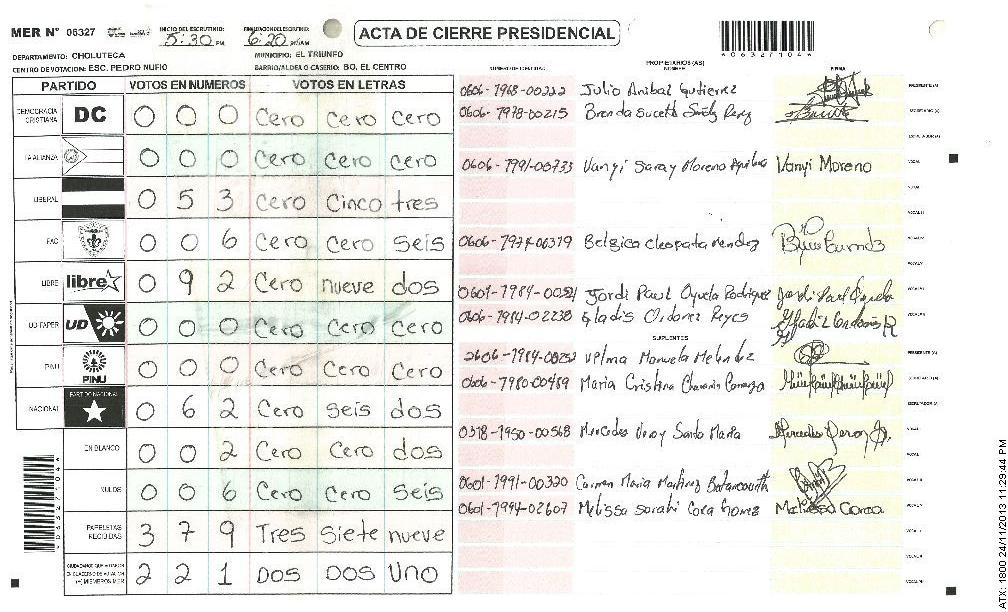 MER N° 06327 INICIO DEL ESCRUTINIO: 5:30 PM FINALIZACION DEL ESCRUTINIO: 6:20 PM/AM ACTA DE CIERRE PRESIDENCIAL
DEPARTAMENTO: CHOLUTECA MUNICIPIO: EL TRIUNFO
CENTRO DE VOTACION: ESC. PEDRO NUFIO BARRIO/ALDEA O CASERIO: BO. EL CENTRO
PARTIDO VOTOS EN NUMEROS VOTOS EN LETRAS
DEMOCRACIA CRISTIANA DC 0 0 0 Cero Cero Cero
LA ALIANZA 0 0 0 Cero Cero Cero
LIBERAL 0 5 3 Cero Cinco tres
PAC 0 0 6 Cero Cero Seis
LIBRE libre 0 9 2 Cero nueve dos
UD-FAPER UD 0 0 0 Cero Cero Cero
PINU PINU 0 0 0 Cero Cero Cero
NACIONAL PARTIDO NACIONAL 0 6 2 Cero Seis dos
EN BLANCO 0 0 2 Cero Cero dos
NULOS 0 0 6 Cero Cero Seis
PAPELETAS RECIBIDAS 3 7 9 Tres Siete nueve
2 2 1 Dos Dos Uno
NUMERO DE IDENTIDAD PROPIETARIOS (AS) NOMBRE FIRMA
0606-1968-00222 Julio Anibal Gutierrez PRESIDENTE (A)
0606-1978-00215 Brenda Suceth SECRETARIO (A)
ESCRUTADOR (A)
0606-1991-00733 Vanyi Saray Moreno Vanyi Moreno VOCAL
0606-1974-00379 Belgica Cleopata Mendez
Jordi Paul Oyuela Rodriguez
0606-1984-02238 Gladis Ordonez Reyes
SUPLENTES
Velma Manuela Melendez PRESIDENTE (A)
0606-1980-00469 Maria Cristina SECRETARIO (A)
ESCRUTADOR (A)
0318-1950-00568 Mercedes Santo Maria VOCAL
0601-1991-00320 Carmen Maria Martinez Betancourth
0601-1994-02607 Melissa Sarahi Melissa
*063271044*
ATX: 1800.24/11/2013 11:29:44 PM